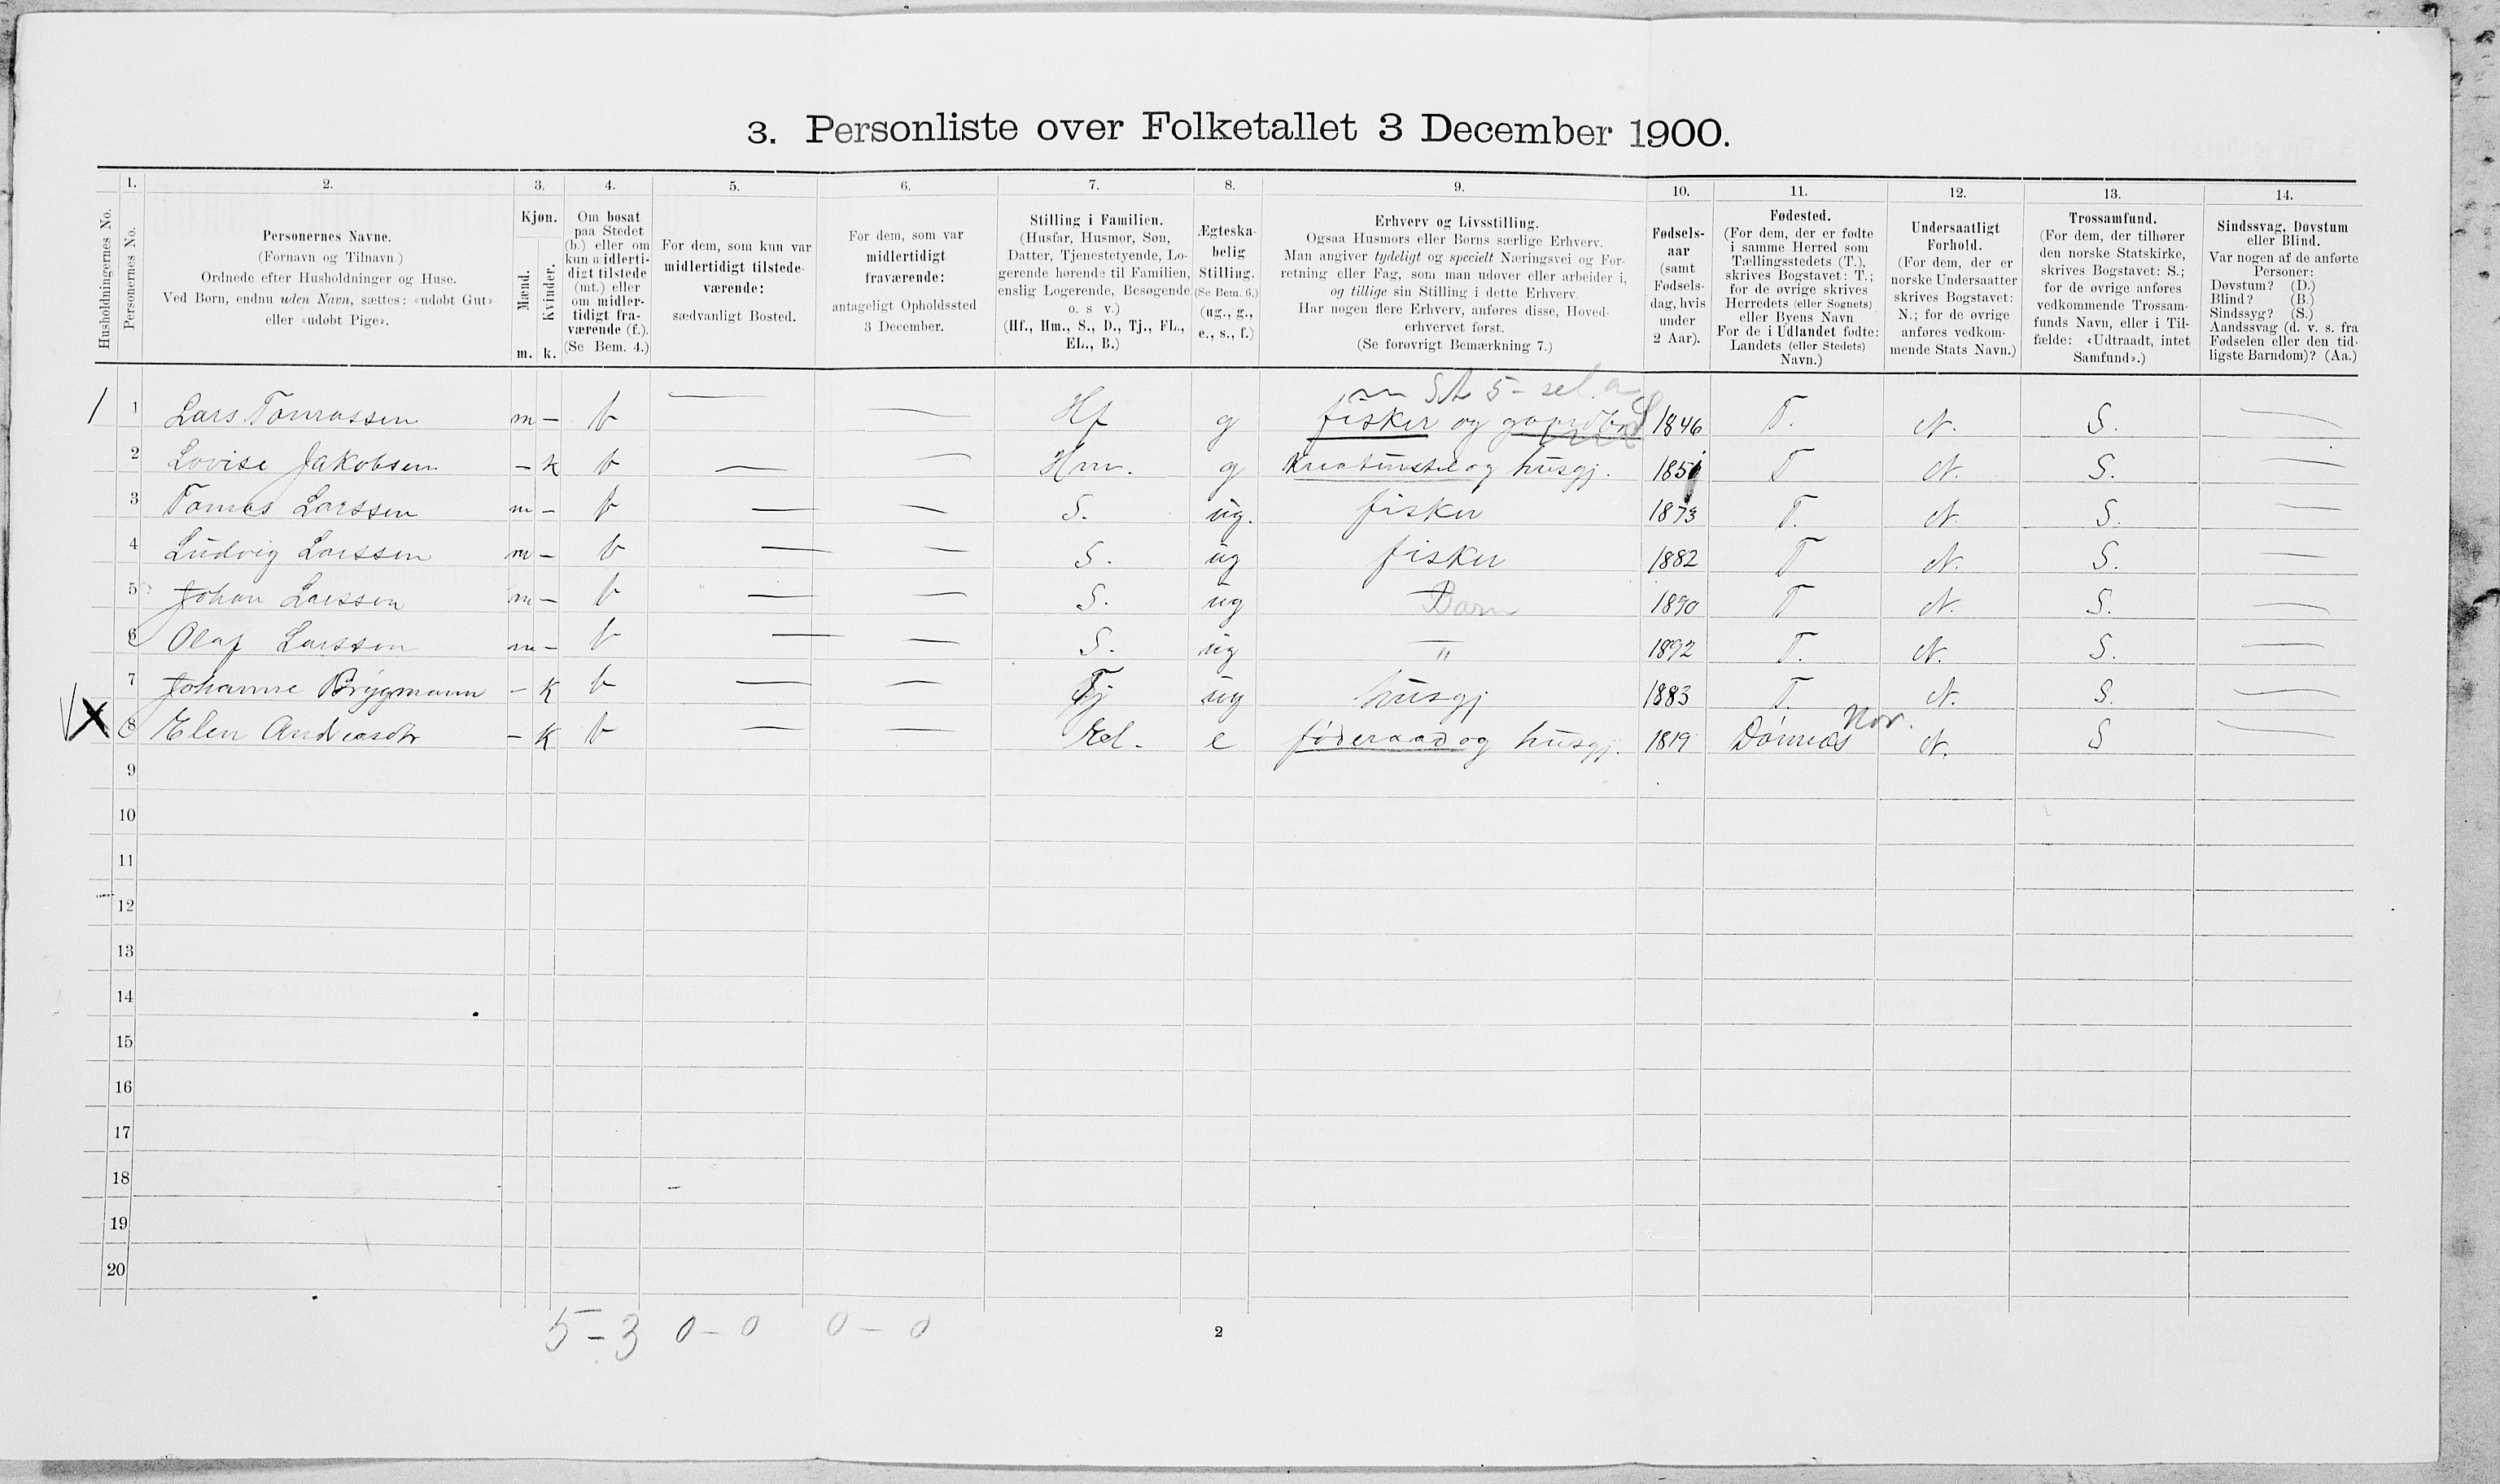 3. Personliste over Folketallet 3 December 1900.
1. 2. 3. 4. 5. 6. 7. 8. 9. 10. 11. 12. 13. 14.
Husholdningernes No.
Personernes No.
Personernes Navne.
(Fornavn og Tilnavn )
Ordnede efter Husholdninger og Huse.
Ved Børn, endnu uden Navn, sættes: «udøbt Gut»
eller «udøbt Pige».
Kjøn.
Mænd.
Kvinder.
m. k.
Om bosat
paa Stedet
(b.) eller om
kun midlerti-
digt tilstede
(mt.) eller
om midler-
tidigt fra-
værende (f.).
(Se Bem. 4.)
For dem, som kun var
midlertidigt tilstede-
værende:
sædvanligt Bosted.
For dem, som var
midlertidigt
fraværende:
antageligt Opholdssted
3 December.
Stilling i Familien.
(Husfar, Husmor, Søn,
Datter, Tjenestetyende, Lo-
gerende hørende til Familien,
enslig Logerende, Besøgende
o. s v.)
(Hf., Hm., S., D., Tj., FL.,
EL., B.)
Ægteska-
belig
Stilling.
(Se Bem. 6.)
(ug., g.,
e., s., f.)
Erhverv og Livsstilling.
Ogsaa Husmors eller Børns særlige Erhverv.
Man angiver tydeligt og specielt Næringsvei og For-
retning eller Fag, som man udøver eller arbeider i,
og tillige sin Stilling i dette Erhverv.
Har nogen flere Erhverv, anføres disse, Hoved-
erhvervet først.
(Se forøvrigt Bemærkning 7.)
Fødsels-
aar
(samt
Fødsels-
dag, hvis
under
2 Aar).
Fødested.
(For dem, der er fødte
i samme Herred som
Tællingsstedets (T.),
skrives Bogstavet: T.;
for de øvrige skrives
Herredets (eller Sognets)
eller Byens Navn
For de i Udlandet fødte:
Landets (eller Stedets)
Navn.)
Undersaatligt
Forhold.
(For dem, der er
norske Undersaatter
skrives Bogstavet:
N.; for de øvrige
anføres vedkom-
mende Stats Navn.)
Trossamfund.
(For dem, der tilhører
den norske Statskirke,
skrives Bogstavet: S.;
for de øvrige anføres
vedkommende Trossam-
funds Navn, eller i Til-
fælde: «Udtraadt, intet
Samfund».)
Sindssvag, Døvstum
eller Blind.
Var nogen af de anførte
Personer:
Døvstum? (D.)
Blind? (B.)
Sindssyg? (S.)
Aandssvag (d. v. s. fra
Fødselen eller den tid-
ligste Barndom)? (Aa.)
1 1 Lars Tomassen m – b — — Hf g fisker og 1846 T. N. S. —
2 Lovise Jakobsen – k b — — Hm. g Kreaturstel og husgj. 185 T N. S. —
3 Tomas Larssen m – b — — S. ug. fisker 1873 T. N. S. —
4 Ludvig Larssen m – b — — S. ug fisker 1882 T N. S. —
5 Johan Larssen m – b — — S. ug Barn 1890 T N. S. —
6 Olaf Larsson m – b — — S. ug " 1892 T. N. S. —
7 Johanne Brygmann – k b — — Tj ug husgj 1883 T. N. S. —
X 8 Elen Andreasdtr – k b — — El. e føderaad og husgj. 1819 Dønnes Nor. N. S —
9
10
11
12
13
14
15
16
17
18
19
20
5 – 3 0 – 0 0 – 0
2